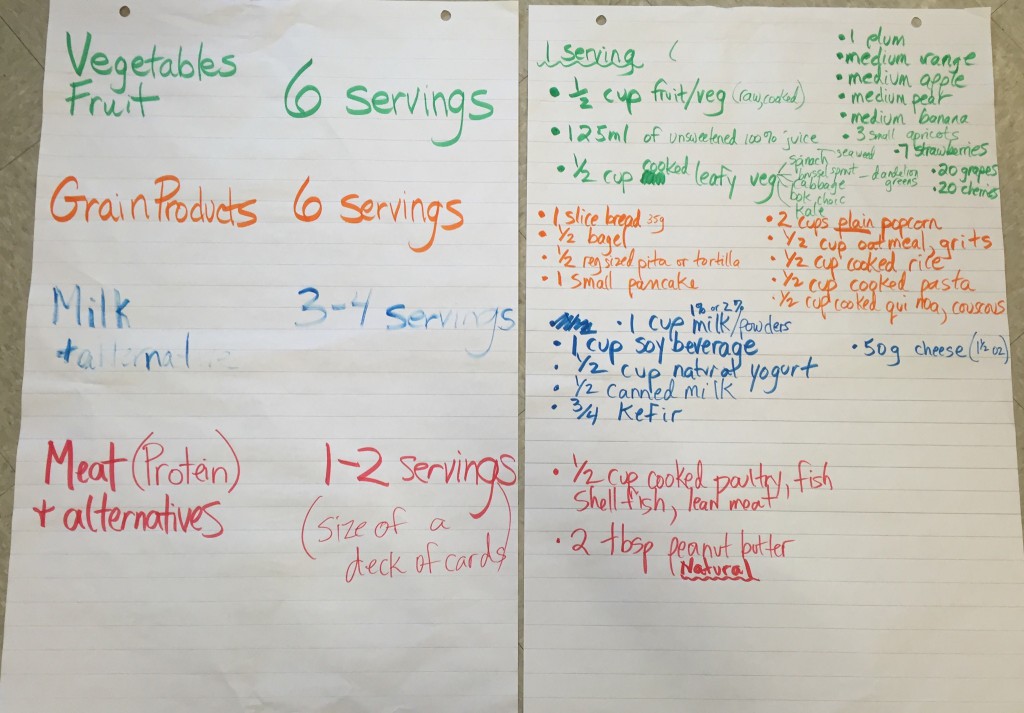 Vegetables
Fruit
6 servings
Grain Products 6 servings
Milk 3-4 servings
+ alternat
Meat (Protein) 1-2 servings
+ alternatives
(size of a
deck of cards)
1 serving (
• ½ cup fruit/veg (raw, cooked)
• 125ml of unsweetened 100% juice
• ½ cup cooked leafy veg
spinach
seaweed
brussel sprout
dandelion
greens
cabbage
bok choic
Kale
• 1 plum
• medium range
• medium apple
• medium pear
• medium banana
• 3 small apricots
• 7 strawberries
• 20 grapes
• 20 cherries
• 1 slice bread 35g
• ½ bagel
• ½ reg sized pita or tortilla
• 1 small pancake
• 2 cups plain popcorn
• ½ cup oatmeal, grits
• ½ cup cooked rice
• ½ cup cooked pasta
• ½ cup cooked quinoa, couscous
1% or 2%
• 1 cup milk/powders
• 1 cup soy beverage
• ½ cup natural yogurt
• ½ canned milk
• ¾ Kefir
• 50g cheese (1½ oz)
• ½ cup cooked poultry, fish
shellfish, lean meat
• 2 tbsp peanut butter
(Natural)